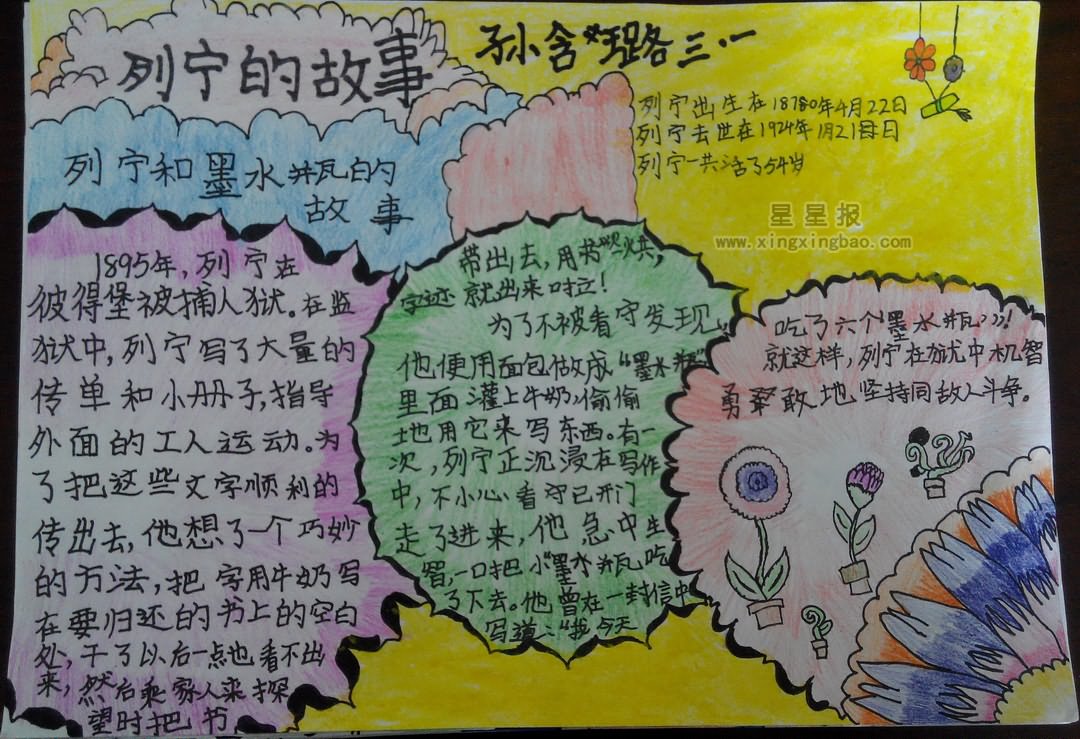 列宁的故事
孙小含 路三·一
列宁出生在18780年4月22日
列宁去世在1924年1月21日
列宁一共活了54岁
星星报
www.xingxingbao.com
列宁和墨水瓶的
故事
1895年,列宁在
彼得堡被捕入狱。在监
狱中,列宁写了大量的
传单和小册子,指导
外面的工人运动。为
了把这些文字顺利的
传出去,他想了一个巧妙
的方法,把字用牛奶写
在要归还的书上的空白
处,干了以后一点也看不出
来,然后乘家人来探
望时把书
带出去,用 火烘,
字迹就出来啦!
为了不被看守发现,
他便用面包做成“墨水瓶”
里面灌上牛奶,偷偷
地用它来写东西。有一
次,列宁正沉浸在写作
中,不小心看守已开门
走了进来,他急中生
智,一口把小“墨水瓶吃
了下去。他曾在一封信中
写道:“我今天
吃了六个墨水瓶》》!
就这样,列宁在狱中机智
勇敢地坚持同敌人斗争。